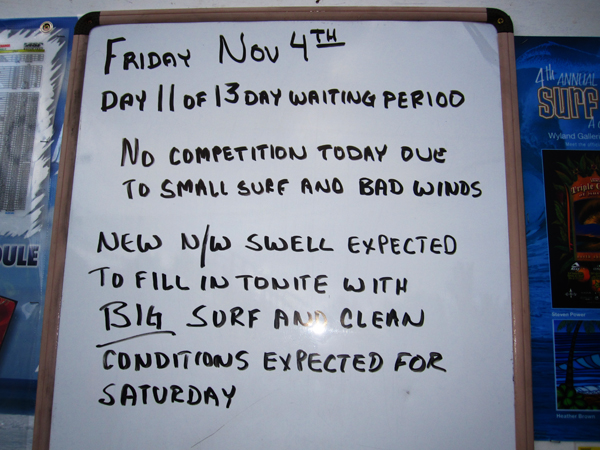 FRIDAY NOV 4TH
DAY 11 OF 13 DAY WAITING PERIOD
NO COMPETITION TODAY DUE
TO SMALL SURF AND BAD WINDS
NEW N/W SWELL EXPECTED
TO FILL IN TONITE WITH
BIG SURF AND CLEAN
CONDITIONS EXPECTED FOR
SATURDAY
4th ANNUAL
SURF
Wyland Galler
Meet the
Triple C
Steven Power
Heather Brown
DULE